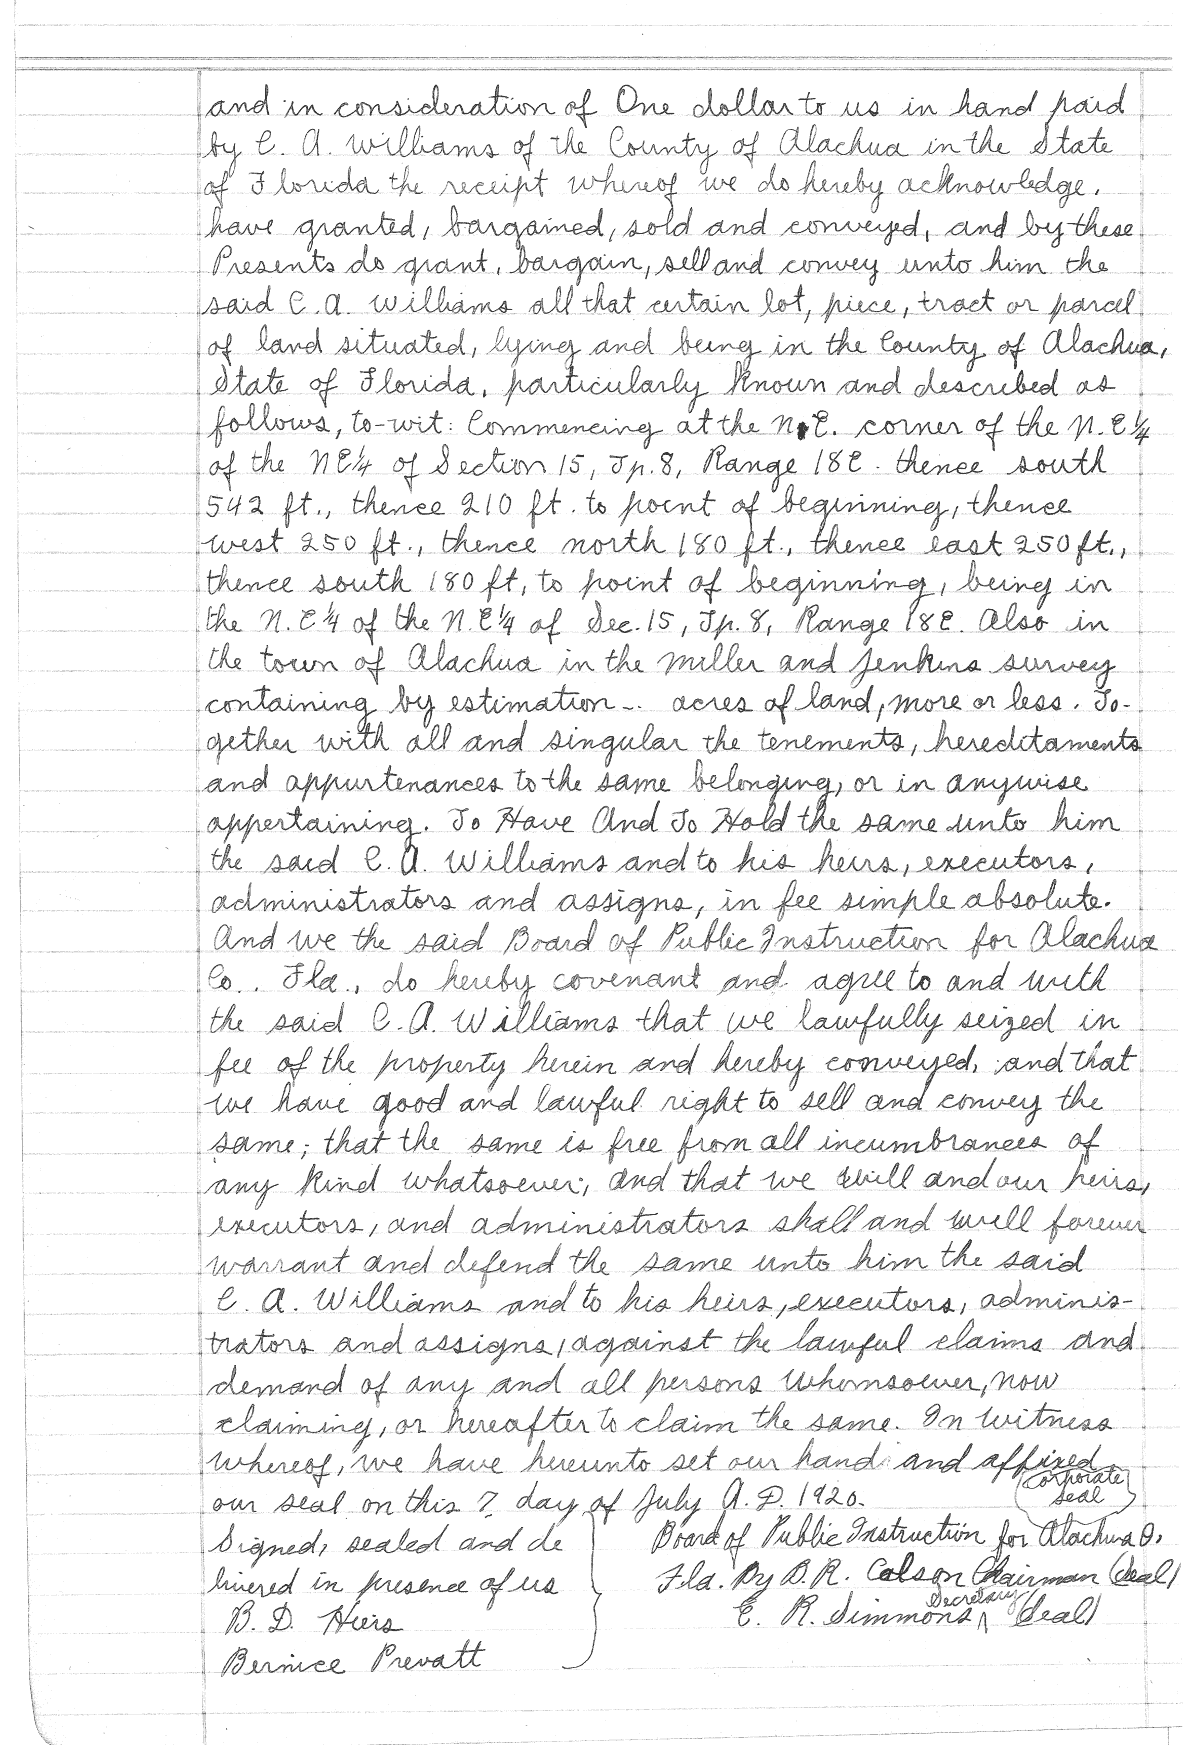 and in consideration of One dollar to us in hand paid
by C. A. Williams of the County of Alachua in the State
of Florida the receipt whereof we do hereby acknowledge.
have granted, bargained, sold and conveyed, and by these
Presents do grant, bargain, sell and convey unto him the
said C. A. Williams all that certain lot, piece, tract or parcel
of land situated, lying and being in the County of Alachua,
State of Florida, particularly known and described as
follows, to-wit: Commencing at the N.E. corner of the N.E¼
of the NE¼ of Section 15, Tp. 8, Range 18E. thence south
542 ft., thence 210 ft. to point of beginning, thence
west 250 ft., thence north 180 ft., thence east 250 ft.,
thence south 180 ft, to point of beginning, being in
the N.E¼ of the N.E¼ of Sec. 15, Tp. 8, Range 18E. Also in
the town of Alachua in the Miller and Jenkins survey
containing by estimation -. acres of land, more or less. To-
gether with all and singular the tenements, hereditaments
and appurtenances to the same belonging, or in anywise
appertaining. To Have And To Hold the same unto him
the said C. A. Williams and to his heirs, executors,
administrators and assigns, in fee simple absolute.
And we the said Board of Public Instruction for Alachua
Co.. Fla., do hereby covenant and agree to and with
the said C. A. Williams that we lawfully seized in
fee of the property herein and hereby conveyed, and that
we have good and lawful right to sell and convey the
same; that the same is free from all incumbrances of
any kind whatsoever; and that we will and our heirs,
executors, and administrators shall and will forever
warrant and defend the same unto him the said
C. A. Williams and to his heirs, executors, adminis-
trators and assigns, against the lawful claims and
demand of any and all persons whomsoever, now
claiming, or hereafter to claim the same. In witness
whereof, we have hereunto set our hand and affixed
our seal on this 7 day of July A. D. 1920. Corporate Seal
Signed, sealed and de Board of Public Instruction for Alachua O.
livered in presence of us Fla. By D. R. Colson Chairman (Seal)
B. D. Hiers E. R. Simmons Secretary (Seal)
Bernice Prevatt